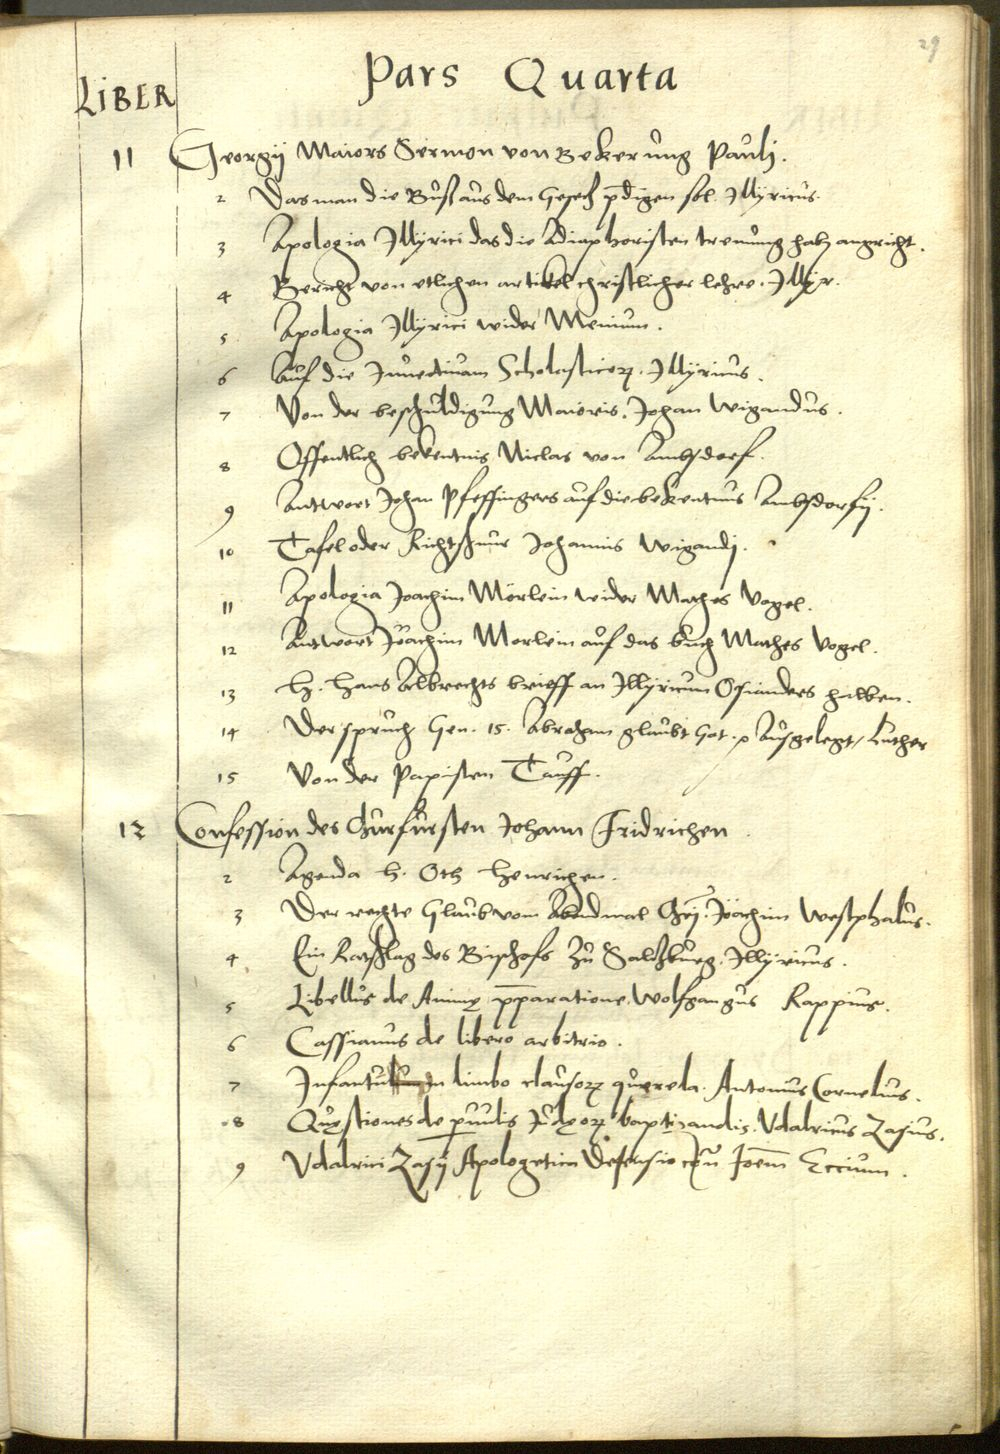 29
Pars Quarta
LIBER
11 Georgij Maiors Sermon von Bekerung Paulj.
2 Das man die Buß aus dem Gesetz p̄digen sol. Illyricus.
3 Apologia Illyrici das die Adiaphoristen trenung hab angricht.
4 Bericht von etlichen artikel christlicher lehre. Illyr.
5 Apologia Illyrici wider Menium.
6 Auf die Inuectiuam Scholasticoꝝ. Illyricus.
7 Von der beschuldigung Maioris. Johan Wigandus.
8 Offentlich bekentnis Niclas von Ambsdorf.
9 Antwort Johan Pfeffingers auf die bekentnus Ambsdorfij.
10 Tafel oder Richtschnur Johannis Wigandj.
11 Apologia Joachim Mörlein wider Mathes Vogel.
12 Antwort Joachim Morlein auf das buch Mathes Vogel.
13 H. Hans Albrechts brieff an Illyricum Osianders halben.
14 Der spruch Gen. 15. Abraham glaubt Got. Ausgelegt / Luther
15 Von der Papisten Tauff.
12 Confession des Churfursten Johann Fridrichen
2 Agenda H. Oth Henrichen.
3 Der rechte Glaub vom Abendmal Joachim Westphalus.
4 Ein Ratschlag des Bischofs zu Saltzburg. Illyricus.
5 Libellus de Animę p̄paratione. Wolfgangus Rappius.
6 Cassianus de libero arbitrio.
7 Infantulū in limbo clausoꝝ querela. Antonius Cornelius.
8 Quęstiones de paruulis Iudęoꝝ baptizandis. Vdalricus Zasius.
9 Vdalrici Zasij Apologetica Defensio Joem̄ Eccium.